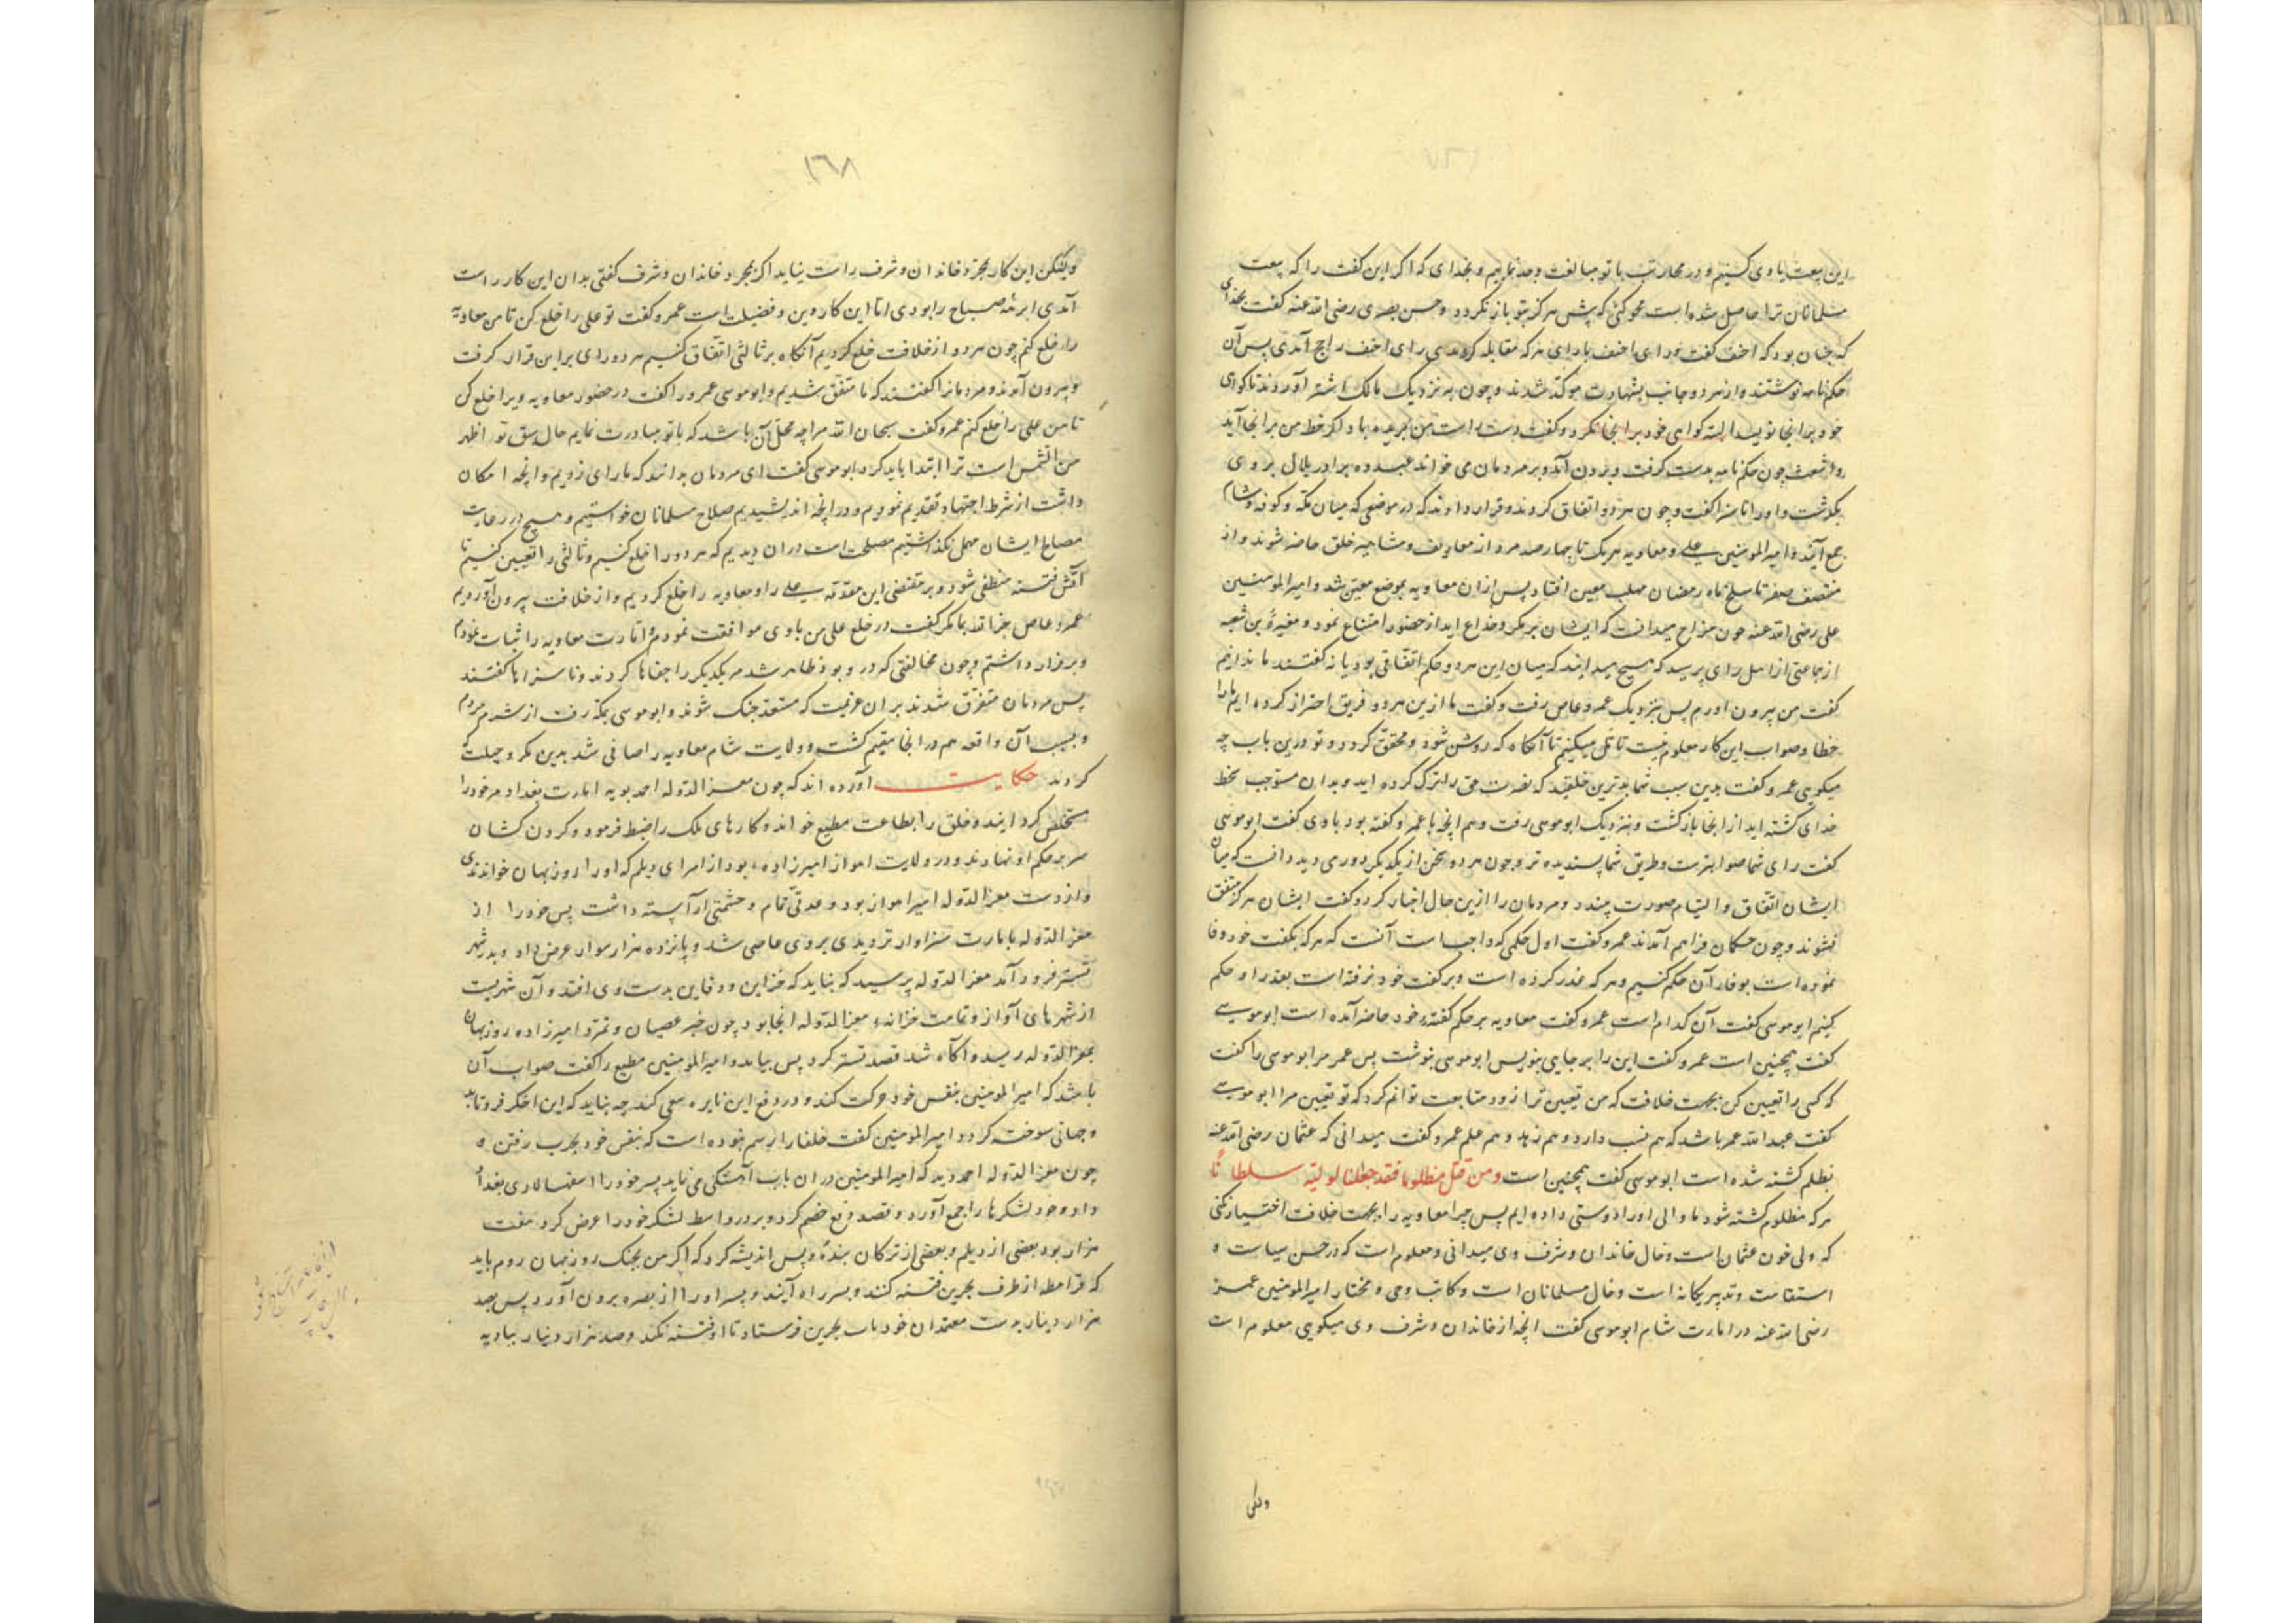 این بیعت با وی کنیم و در محاربت با تو مبالغت و جد نماییم و بخدای که اگر این کفت را که بیعت
مسلمانان ترا حاصل شده است محو کنی که پیش هرکز بتو باز نکردد و حسن بصری رضی الله عنه کفت بخدای
که چنان بود که احنف کفت و رای احنف با رای هرکه مقابله کردندی رای احنف راجح آمدی پس آن
حکم نامه نوشتند و از هر دو جانب بشهادت موکد شدند و چون به نزدیک مالک اشتر آوردند تا کواهی
خود بر انجا نویسد البته کواهی خود بر انجا نکرد و کفت دست راست من بریده باد اکر خط من بر انجا آید
و اشعث چون حکم نامه بدست کرفت و برون آمد و بر مردمان می خواند عبیده برادر بلال بر وی
بکذشت و او را ناسزا کفت و چون هر دو اتفاق کردند و قرار دادند که در موضعی که میان مکه و کوفه و شام
جمع آیند و امیرالمومنین علی و معاویه هر یک تا چهارصد مرد از معارف و مشاهیر خلق حاضر شوند و از
منتصف صفر تا سلخ ماه رمضان مهلت معین افتاد پس ازان معاویه بموضع معین شد و امیرالمومنین
علی رضی الله عنه چون مزاج میدانست که ایشان بر مکر و خداع اند از حضور امتناع نمود و مغیرة بن شعبه
از جماعتی از اهل رای پرسید که هیچ میدانید که میان این هر دو حکم اتفاقی بود یا نه کفتند ما ندانیم
کفت من بیرون اورم پس بنزدیک عمرو عاص رفت و کفت ما ازین هر دو فریق احتراز کرده ایم ما را
خطا و صواب این کار معلوم نیست تامل میکنیم تا آنکاه که روشن شود و محقق کردد و تو درین باب چه
میکویی عمرو کفت بدین سبب شما بدترین خلقید که نصرت حق را ترک کرده اید و بدان مستوجب سخط
خدای کشته اید از انجا بازکشت و بنزدیک ابوموسی رفت و هم انچه با عمرو کفته بود با وی کفت ابوموسی
کفت رای شما صوابترست و طریق شما پسندیده تر و چون هر دو سخن از یکدیکر دور می دید دانست که میان
ایشان اتفاق و التیام صورت نبندد و مردمان را ازین حال اخبار کرد و کفت ایشان هرکز متفق
نشوند و چون حکمان فراهم آمدند عمرو کفت اول حکمی که واجب است آنست که هرکه بکفت خود وفا
نموده است بوفاء آن حکم کنیم و هرکه غدر کرده است و بر کفت خود نرفته است بغدر او حکم
کنیم ابوموسی کفت آن کدام است عمرو کفت معاویه بر حکم کفته خود حاضر آمده است ابوموسی
کفت همچنین است عمرو کفت این را بر جایی بنویس ابوموسی بنوشت پس عمرو مر ابوموسی را کفت
که کسی را تعیین کن بجهت خلافت که من تعیین ترا زود متابعت توانم کرد که تو تعیین مرا ابوموسی
کفت عبدالله عمر باشد که هم نسب دارد و هم زهد و هم علم عمرو کفت میدانی که عثمان رضی الله عنه
بظلم کشته شده است ابوموسی کفت همچنین است ومن قتل مظلوما فقد جعلنا لولیه سلطانا
هرکه مظلوم کشته شود ما والی او را دوستی داده ایم پس چرا معاویه را بجهت خلافت اختیار نکنی
که ولی خون عثمان است و حال خاندان و شرف وی میدانی و معلوم است که در حسن سیاست و
استقامت و تدبیر یکانه است و خال مسلمانان است و کاتب وحی و مختار امیرالمومنین عمر
رضی الله عنه در امارت شام ابوموسی کفت انچه از خاندان و شرف وی میکویی معلوم است
ولکن
۱۶۸
ولیکن این کار بمجرد خاندان و شرف راست نیاید اکر بمجرد خاندان و شرف کفتی بدان این کار راست
آمدی ابرهه صباح را بودی اما این کار دین و فضیلت است عمرو کفت تو علی را خلع کن تا من معاویه
را خلع کنم چون هر دو از خلافت خلع کردیم آنکاه بر ثالثی اتفاق کنیم هر دو رای بر این قرار کرفت
و بیرون آمدند و مردمانرا کفتند که ما متفق شدیم و ابوموسی عمرو را کفت در حضور معاویه ویرا خلع کن
تا من علی را خلع کنم عمرو کفت سبحان الله مرا چه محل آن باشد که با تو مبادرت نمایم حال سبق تو اظهر
من الشمس است ترا ابتدا باید کرد ابوموسی کفت ای مردمان بدانند که ما رای زدیم و انچه امکان
داشت از شرط اجتهاد تقدیم نمودیم و در انچه اندیشیدیم صلاح مسلمانان خواستیم و هیچ در رعایت
مصالح ایشان مهمل نکذاشتیم مصلحت است دران دیدیم که هر دو را خلع کنیم و ثالثی را تعیین کنیم تا
آتش فتنه منطفی شود و بر مقتضی این مقدمه علی را و معاویه را خلع کردیم و از خلافت بیرون آوردیم
عمرو عاص جزاه الله بمکر کفت در خلع علی من با وی موافقت نمودم و امارت معاویه را اثبات نمودم
و برقرار داشتم و چون مخالفتی که در وی بود ظاهر شد مر یکدیکر را جفاها کردند و ناسزاها کفتند
پس مردمان متفرق شدند بران عزیمت که مستعد جنک شوند و ابوموسی بمکه رفت از شرم مردم
و بسبب آن واقعه هم در انجا مقیم کشت و ولایت شام معاویه را صافی شد بدین مکر و حیلت که
کردند حکایت آورده اند که چون معزالدوله احمد بویه امارت بغداد مر خود را
مستخلص کردانید و خلق را بطاعت مطیع خواند و کارهای ملک را ضبط فرمود و کردن کشان
سر بر حکم او نهادند و در ولایت اهواز امیرزاده بود از امرای دیلم که او را روزبهان خواندندی
و از دست معزالدوله امیر اهواز بود و عدتی تمام و حشمتی آراسته داشت پس خود را از
معزالدوله بامارت سزاوارتر دیدی بر وی عاصی شد و پانزده هزار سوار عرض داد و بدر شهر
تستر فرود آمد معزالدوله پرسید که نباید که خزاین و دفاین بدست وی افتد و آن شهریست
از شهرهای اهواز و تمامت خزانه معزالدوله انجا بود چون خبر عصیان و تمرد امیرزاده روزبهان
بمعزالدوله رسید و آکاه شد قصد تستر کرد پس بیامد و امیرالمومنین مطیع را کفت صواب آن
باشد که امیرالمومنین بنفس خود حرکت کند و در دفع این نایره سعی کند چه نباید که این اخکر فرو تابد
و جهانی سوخته کردد امیرالمومنین کفت خلفا را رسم نبوده است که بنفس خود بحرب رفتن و
چون معزالدوله احمد دید که امیرالمومنین دران باب آهستکی می نماید پسر خود را اسفهسالاری بغداد
داد و خود لشکرها را جمع آورد و قصد دفع خصم کرد و بر در واسط لشکر خود را عرض کرد هفت
هزار بود بعضی از دیلم و بعضی از ترکان بنده و پس اندیشه کرد که اکر من بجنک روزبهان روم باید
که قرامطه از طرف بحرین فتنه کنند و بسر راه آیند و پسر او را از بصره برون آورد پس بصد
هزار دینار بدست معتمدان خود باب بحرین فرستاد تا او فتنه نکند و صد هزار دینار ببادیه